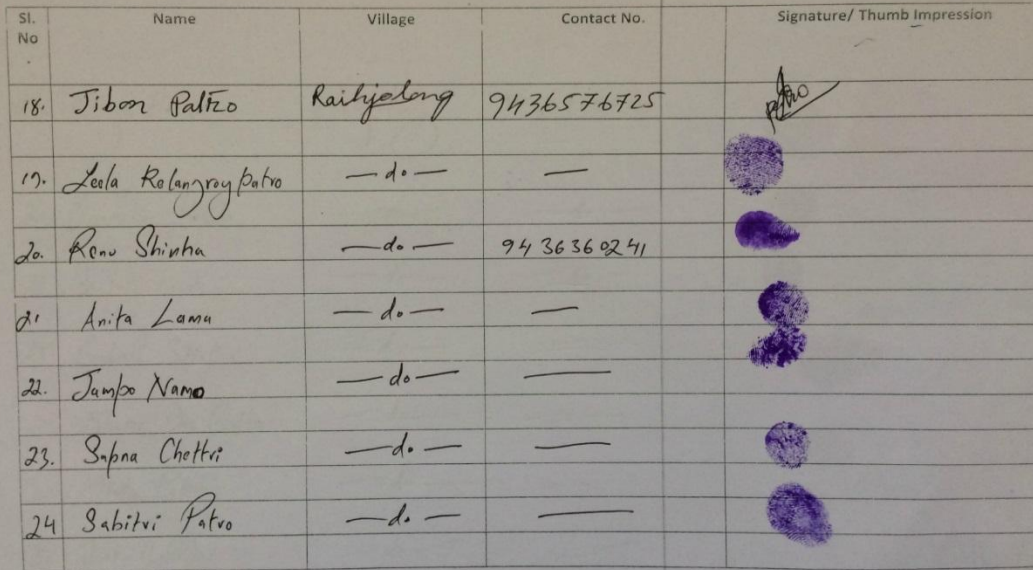 Sl. No Name Village Contact No. Signature/ Thumb Impression
18. Jibon Patro Raihjolong 9436576725 Patro
19. Leela Relangroy Patro —do— —
20. Renu Shinha —do— 9436360241
21 Anita Lama —do— —
22. Jampo Namo —do— —
23. Sapna Chettri —do— —
24 Sabitri Patro —do— —